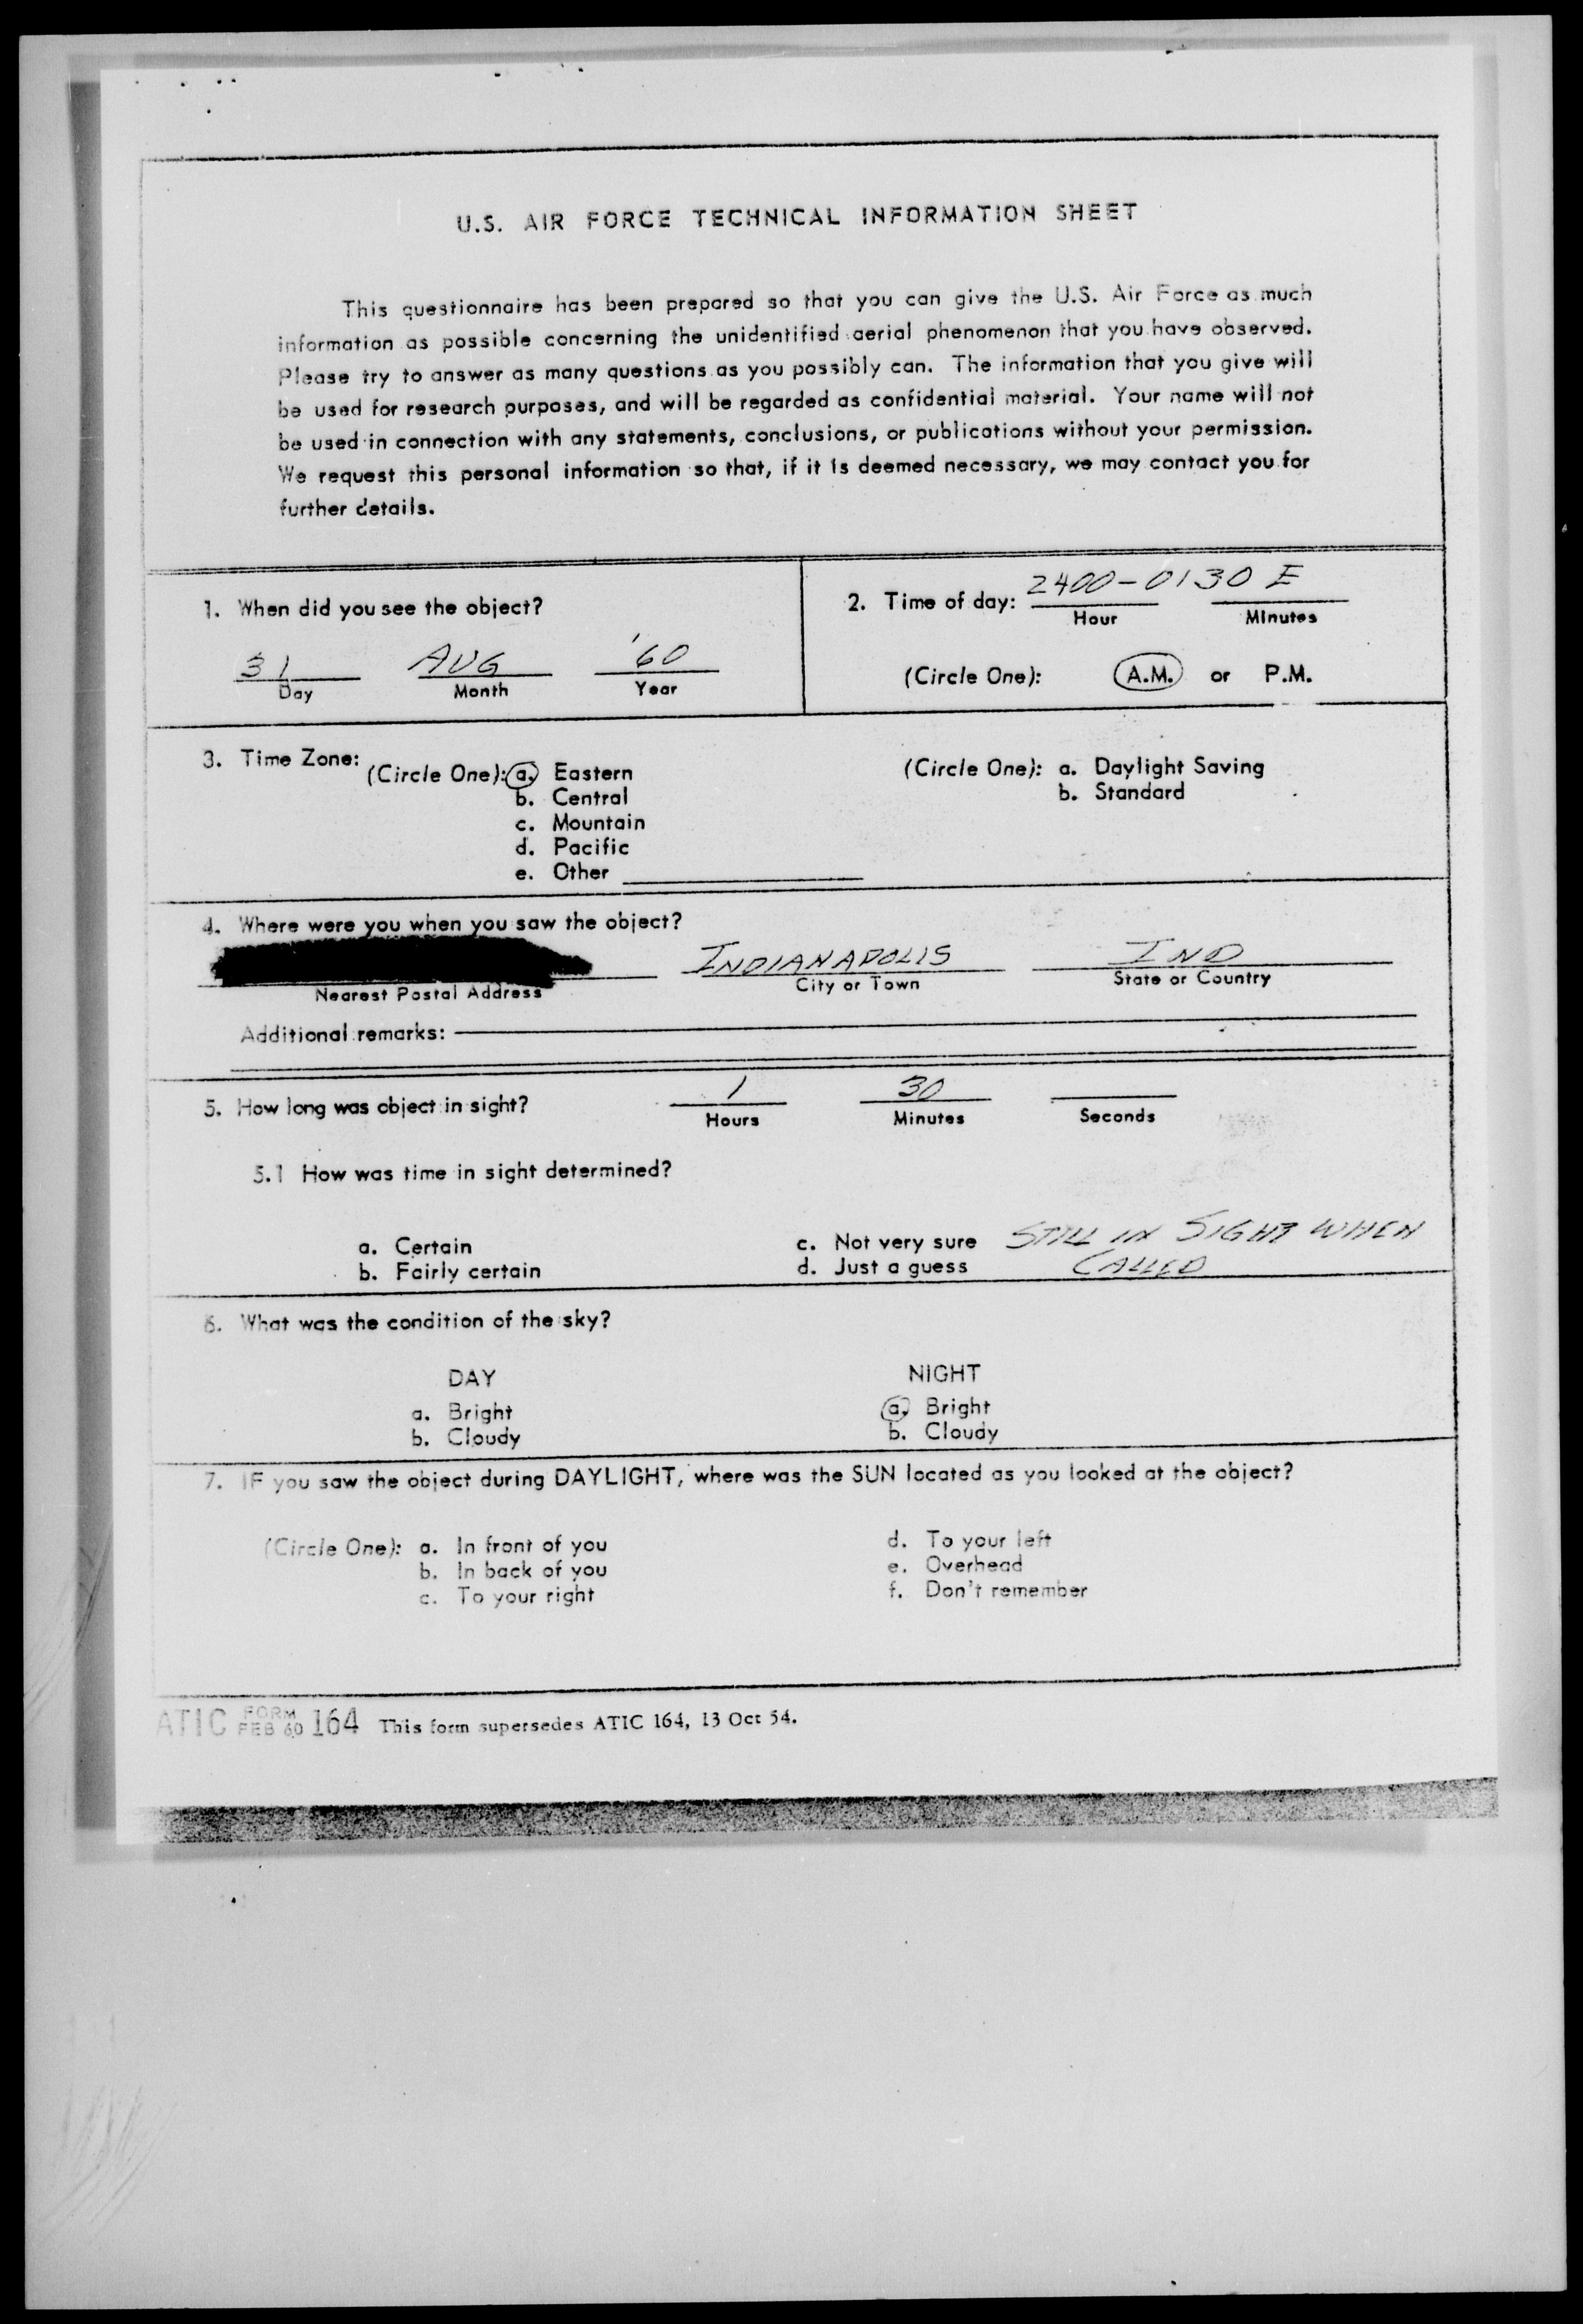 U.S. AIR FORCE TECHNICAL INFORMATION SHEET
This questionnaire has been prepared so that you can give the U.S. Air Force as much
information as possible concerning the unidentified aerial phenomenon that you have observed.
Please try to answer as many questions as you possibly can. The information that you give will
be used for research purposes, and will be regarded as confidential material. Your name will not
be used in connection with any statements, conclusions, or publications without your permission.
We request this personal information so that, if it is deemed necessary, we may contact you for
further details.
1. When did you see the object?
31 AUG '60
Day Month Year
2. Time of day: 2400-0130 E
Hour Minutes
(Circle One): A.M. or P.M.
3. Time Zone:
(Circle One): a. Eastern
b. Central
c. Mountain
d. Pacific
e. Other
(Circle One): a. Daylight Saving
b. Standard
4. Where were you when you saw the object?
INDIANAPOLIS IND
Nearest Postal Address City or Town State or Country
Additional remarks:
5. How long was object in sight? 1 30
Hours Minutes Seconds
5.1 How was time in sight determined?
a. Certain
b. Fairly certain
c. Not very sure STILL IN SIGHT WHEN
d. Just a guess CALLED
6. What was the condition of the sky?
DAY
a. Bright
b. Cloudy
NIGHT
a. Bright
b. Cloudy
7. IF you saw the object during DAYLIGHT, where was the SUN located as you looked at the object?
(Circle One): a. In front of you
b. In back of you
c. To your right
d. To your left
e. Overhead
f. Don't remember
ATIC FORM FEB 60 164 This form supersedes ATIC 164, 13 Oct 54.